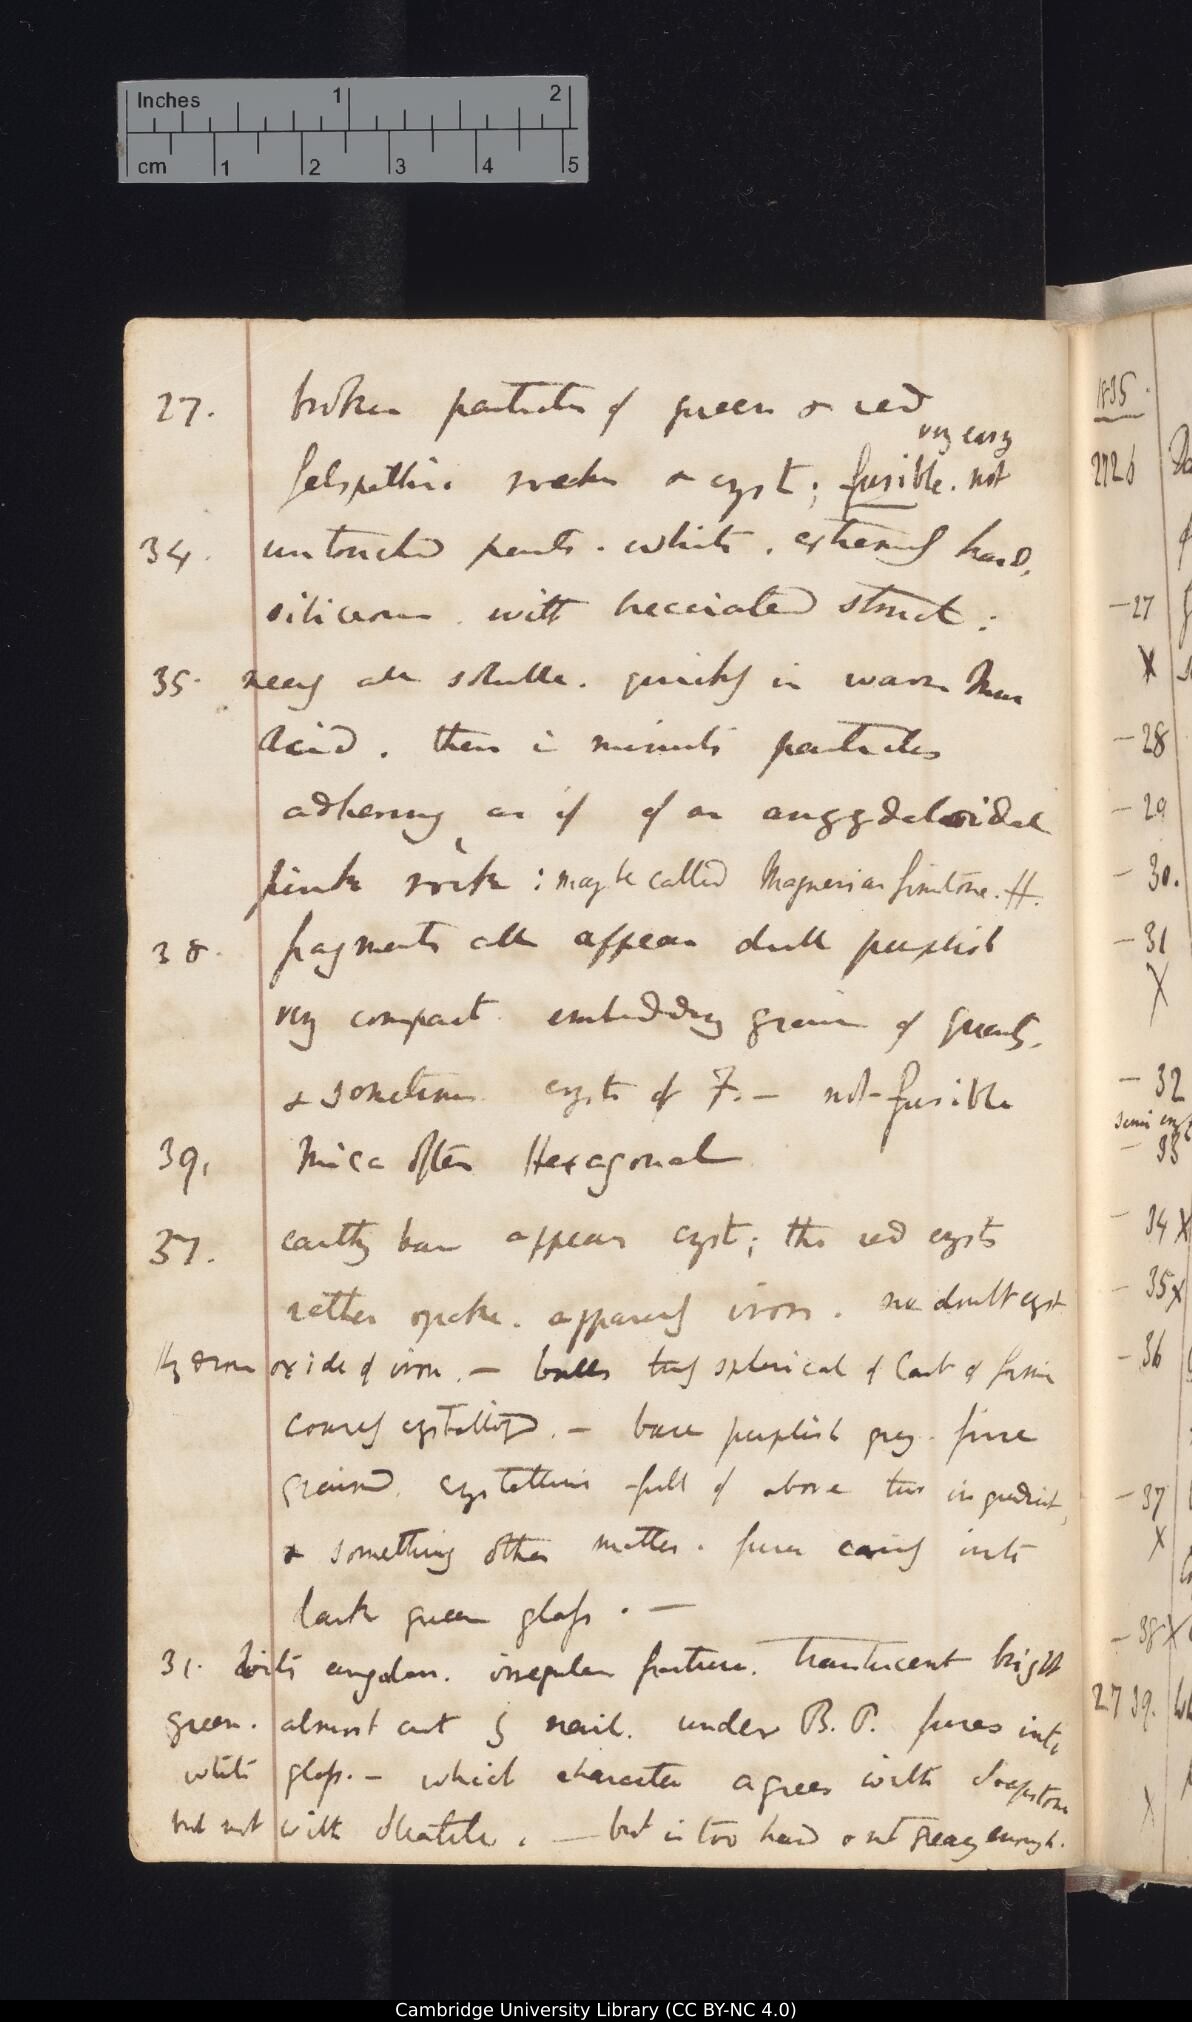 Inches 1 2
cm 1 2 3 4 5
27. broken particles of green & red
very easy
felspathic rocks & cryst; fusible. not
34. untouched parts. white. extremely hard,
siliceous. with brecciated struct:
35. nearly all soluble. quickly in warm Mur
Acid. there is minute particles
adhering, as if of an amygdaloidal
pink rock: may be called Magnesian limestone. H.
38. fragments all appear dull purplish
very compact. embedding grains of quartz.
& sometimes crysts of F. — not fusible
39. Mica often Hexagonal
37. earthy base appears cryst; the red crysts
rather opake. apparently iron. no doubt cryst
Hydrous oxide of iron. — balls truly spherical of Carb of Lime
coarsely crystallized. — base purplish grey. fine
grained. crystalline full of above two ingredient,
& something other matter. fuses easily into
dark green glass. —
31. bits angular. irregular fracture. translucent bright
green. almost cut by nail. under B.P. fuses into
white glass. — which character agrees with Soapstone
but not with Steatite. — but is too hard & not greasy enough.
1835.
2726
—27
X
—28
—29
—30.
—31
X
—32
—33
—34 X
—35 X
—36
—37
X
—38 X
2739.
X
Cambridge University Library (CC BY-NC 4.0)